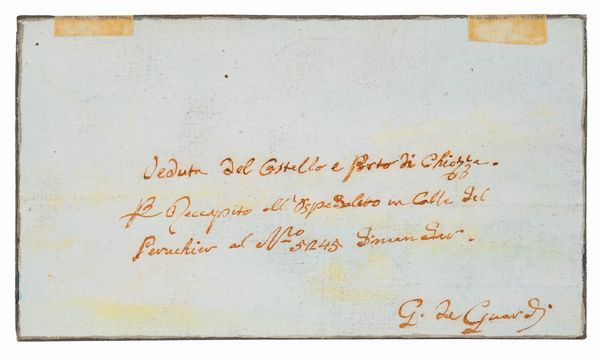 Veduta del Castello e Porto di Chiozza.
Pr Reccapito all'Ospedaletto in Calle del
Peruchier al Nro 5245 dimandar.
G. de Guardi